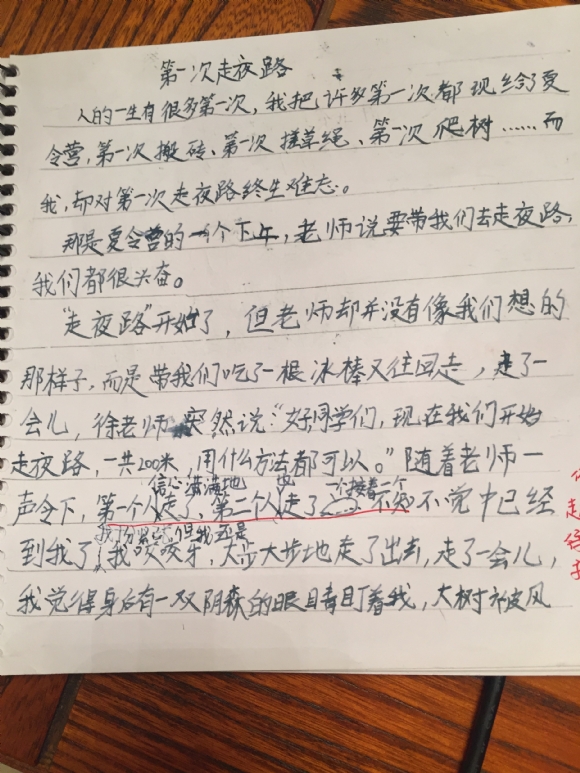 第一次走夜路
人的一生有很多第一次，我把许多第一次都现给了夏
令营，第一次搬砖、第一次搓草绳、第一次爬树……而
我，却对第一次走夜路终生难忘。
那是夏令营的一个下午，老师说要带我们去走夜路，
我们都很兴奋。
“走夜路”开始了，但老师却并没有像我们想的
那样子，而是带我们吃了一根冰棒又往回走，走了一
会儿，徐老师突然说：“好同学们，现在我们开始
走夜路，一共200米，用什么方法都可以。”随着老师一
信心满满地 也 一个接着一个
声令下，第一个人走了、第二个人走了……不知不觉中已经
但我还是
到我了，我咬咬牙，大步大步地走了出去，走了一会儿，
我觉得身后有一双阴森的眼睛盯着我，大树被风